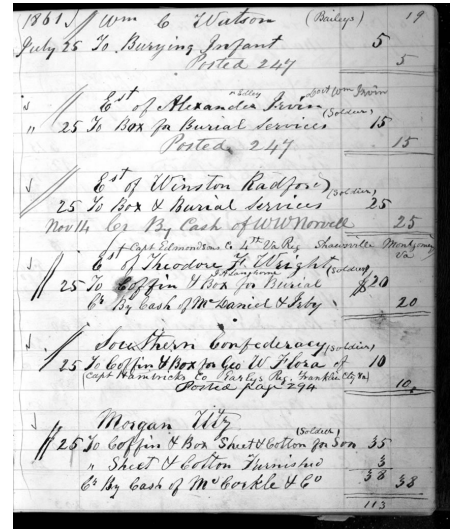 1861 Wm C Watson (Baileys) 19
July 25 To Burying Infant 5
Posted 247 5
Govt Wm Irvin
Est of Alexander Irvin (Soldier)
" 25 To Box for Burial Services 15
Posted 247 15
Est of Winston Radford (Soldier)
25 To Box & Burial Services 25
Nov 14 Cr By Cash of WW Norvell 25
Capt Edmondsons Co 4th Va Reg Shawsville Montgomery Va
Est of Theodore F. Wright (Soldier)
J A Langhorne
25 To Coffin & Box for Burial $20
Cr By Cash of McDaniel & Irby 20
Southern Confederacy (Soldier)
25 To Coffin & Box for Geo W Flora of 10
(Capt Hambricks Co Earlys Reg. Franklin Cty Va)
Posted page 294 10
Morgan Utz (Soldier)
25 To Coffin & Box Sheet & Cotton for Son 35
" Sheet & Cotton Furnished 3
Cr By Cash of McCorkle & Co 38 38
113